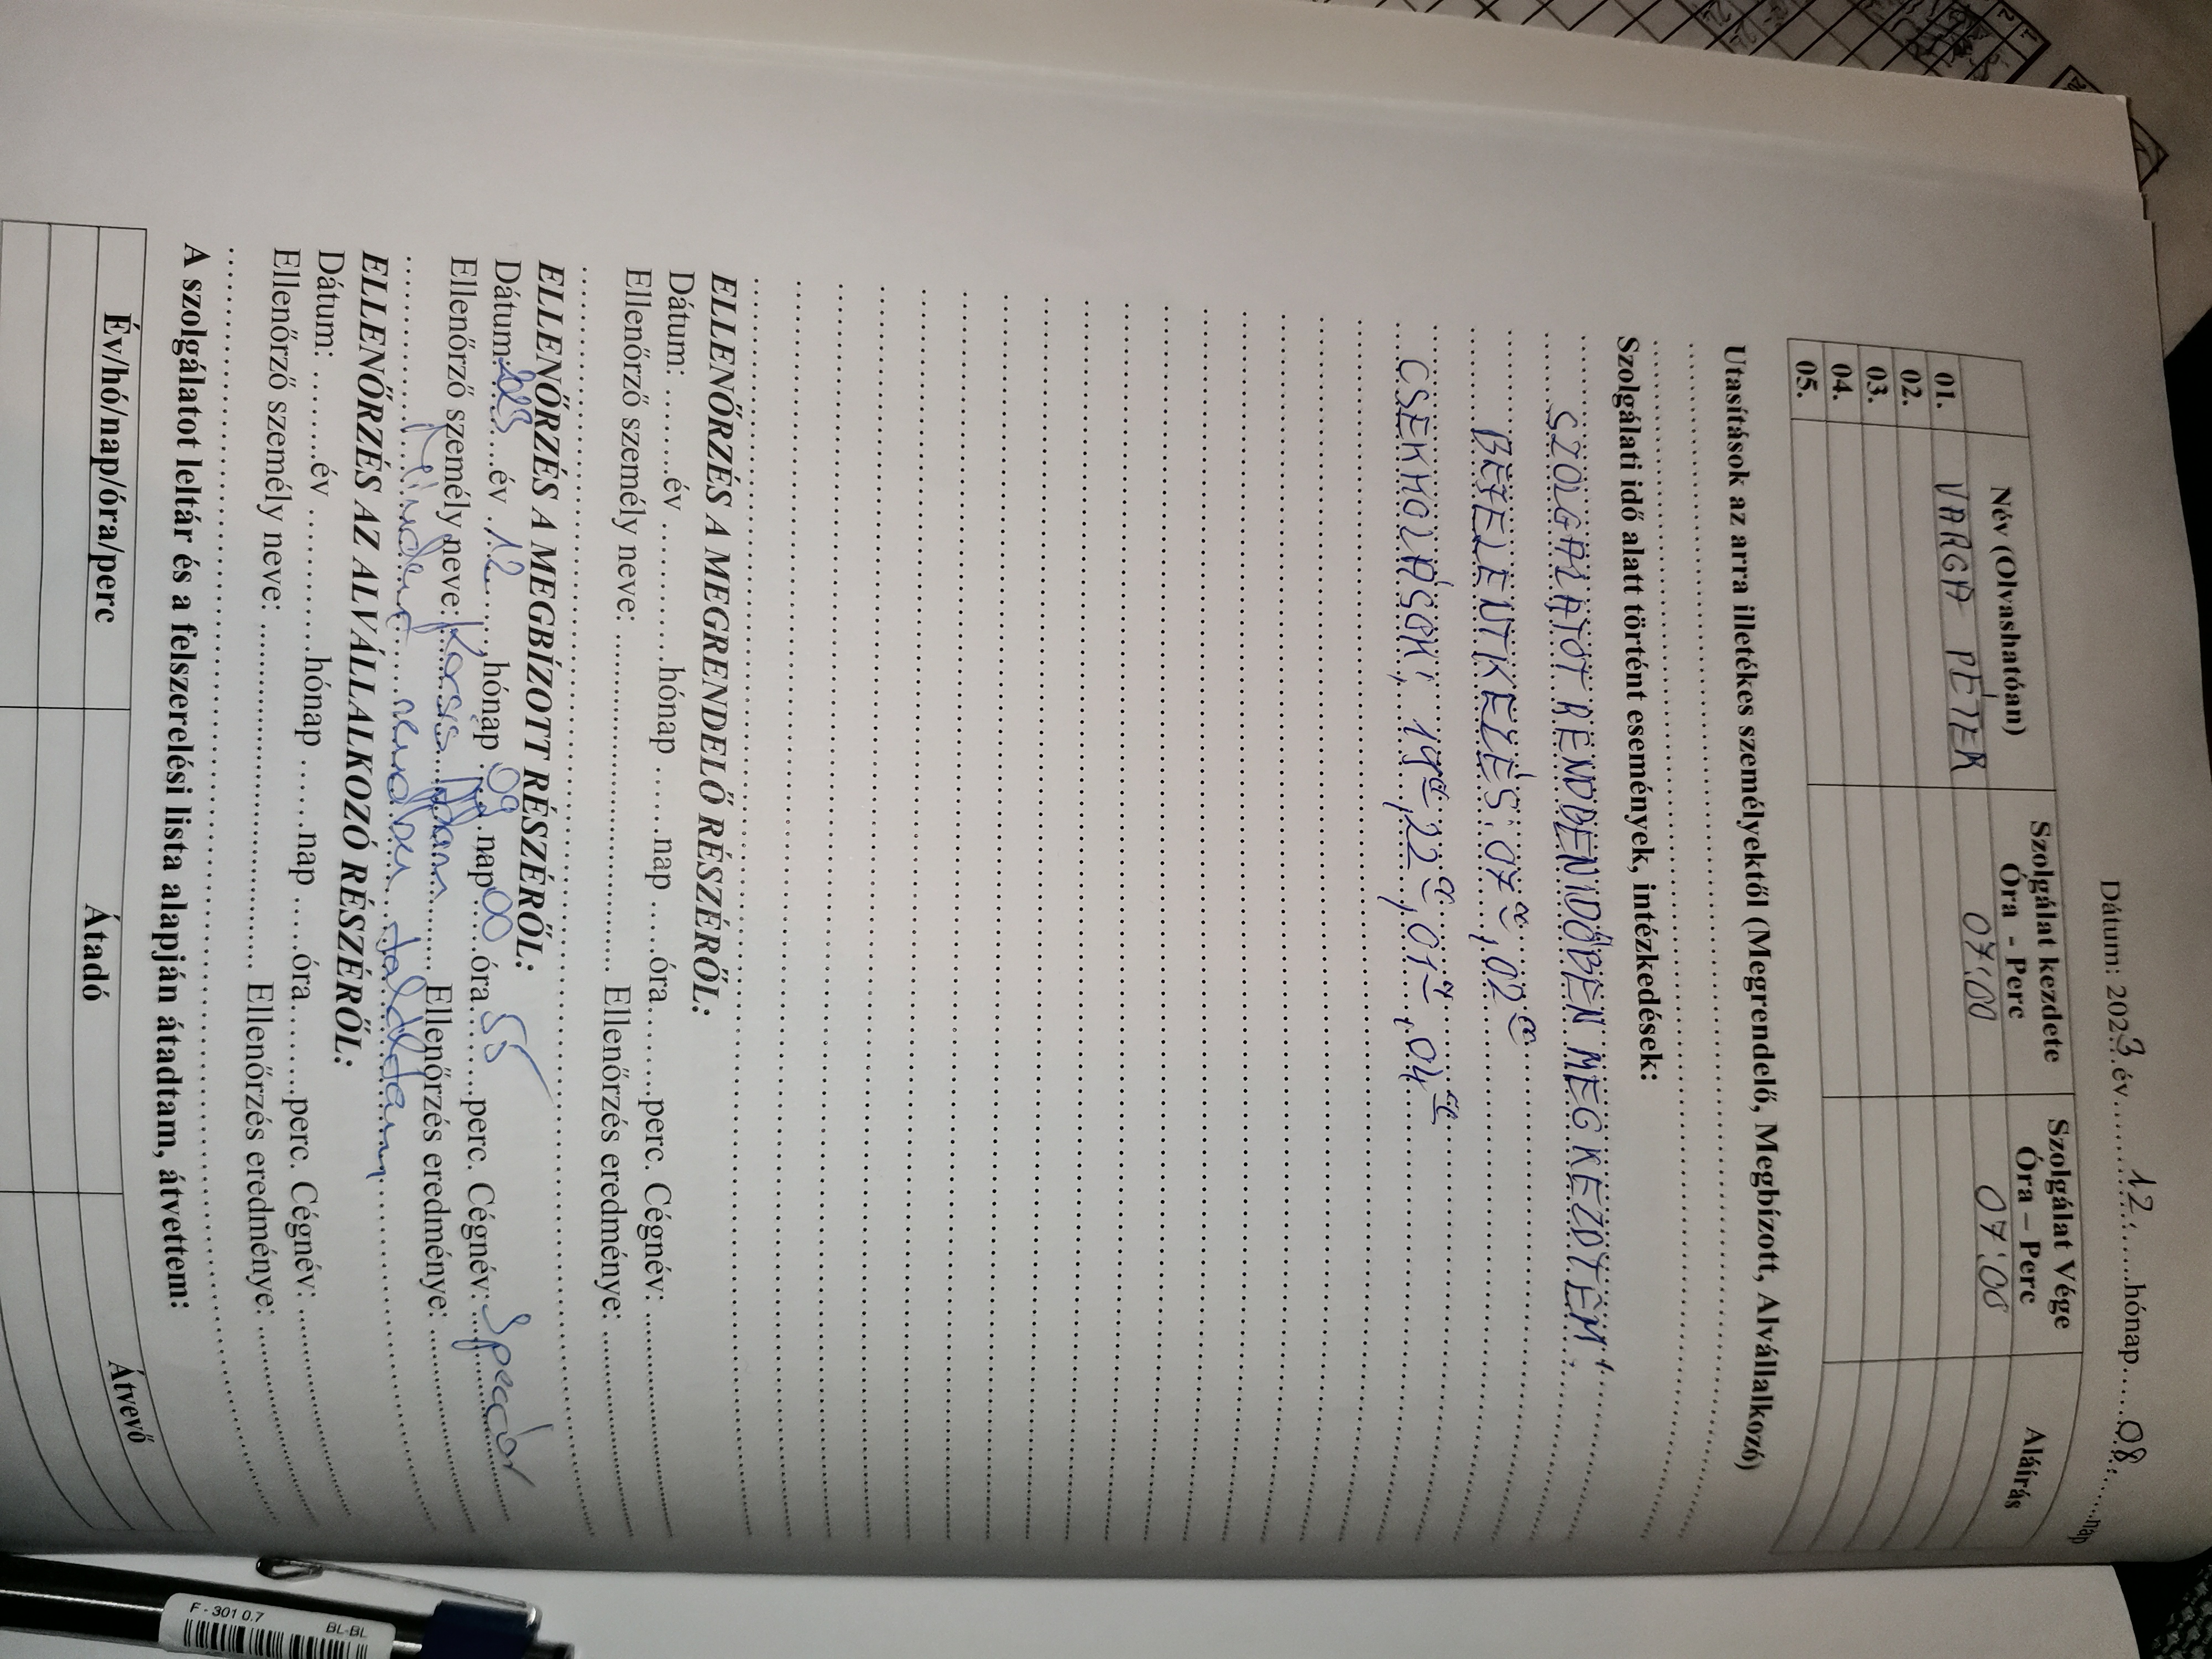 Dátum: 2023 év 12 hónap 08 nap
Név (Olvashatóan) Szolgálat kezdete Óra - Perc Szolgálat Vége Óra – Perc Aláírás
01. VARGA PÉTER 07:00 07:00
02.
03.
04.
05.
Utasítások az arra illetékes személyektől (Megrendelő, Megbízott, Alvállalkozó)
Szolgálati idő alatt történt események, intézkedések:
SZOLGÁLATOT RENDBEN IDŐBEN MEGKEZDTEM!
BEJELENTKEZÉS: 07⁰⁰, 02⁰⁰
22⁰⁰, 01⁰⁰, 04⁰⁰
ELLENŐRZÉS A MEGRENDELŐ RÉSZÉRŐL:
Dátum: ........év ............hónap ......nap ....óra........perc. Cégnév: ....................
Ellenőrző személy neve: .................................... Ellenőrzés eredménye: ....................
ELLENŐRZÉS A MEGBÍZOTT RÉSZÉRŐL:
Dátum: 2023 év 12 hónap 09 nap 00 óra 55 perc. Cégnév:
Ellenőrző személy neve: Ádám Ellenőrzés eredménye: ....................
Mindent rendben találtam
ELLENŐRZÉS AZ ALVÁLLALKOZÓ RÉSZÉRŐL:
Dátum: ........év ............hónap ......nap ....óra........perc. Cégnév: ....................
Ellenőrző személy neve: .................................... Ellenőrzés eredménye: ....................
A szolgálatot leltár és a felszerelési lista alapján átadtam, átvettem:
Év/hó/nap/óra/perc Átadó Átvevő
F - 301 0.7 BL-BL